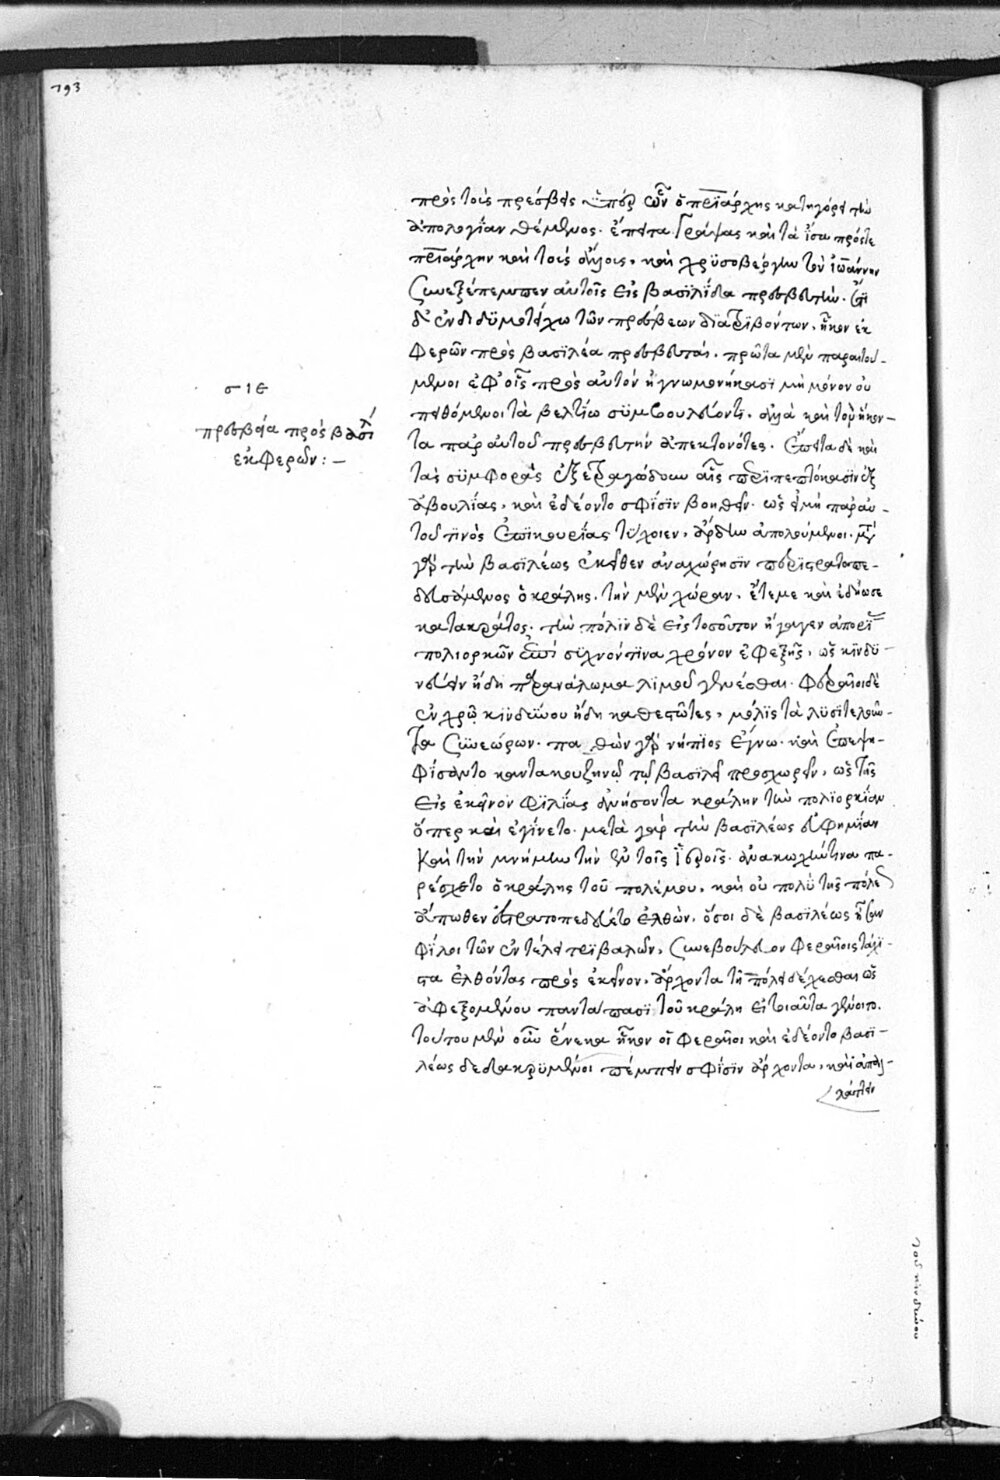 793
πρὸς τοὺς πρέσβεις ὑπὲρ ὧν ὁ πριάρχης κατηγόρει τὴν
ἀπολογίαν θέμενος. ἔπειτα γράψας καὶ τὰ ἴσα πρός τε
πριάρχην καὶ τοὺς ἄλλους, καὶ χρϋσοβέργην τὸν ἰωάννην
συνεξέπεμπεν αὐτοῖς εἰς βασιλίδα πρεσβευτήν. ἔτι
δ' ἐν διδϋμοτείχω τῶν πρέσβεων διατριβόντων, ἧκον ἐκ
σιε
πρεσβεία πρὸς βασιλ
ἐκ φερῶν: –
φερῶν πρὸς βασιλέα πρεσβευταί. πρῶτα μὲν παραιτού-
μενοι ἐφ' οἷς πρὸς αὐτὸν ἠγνωμονήκασϊ μὴ μόνον οὐ
πειθόμενοι τὰ βελτίω σϋμβουλεύοντι, ἀλλὰ καὶ τοὺς ἥκον-
τα παρ' αὐτοῦ πρεσβευτὴν ἀπεκτονότες. ἔπειτα δὲ καὶ
τὰς σϋμφορὰς ἐξετραγώδουν αἷς περϊπεπτώκασϊν ἐξ
ἀβουλίας, καὶ ἐδέοντο σφίσϊν βοηθεῖν. ὡς εἰ μὴ παρ' αὐ-
τοῦ τϊνὸς ἐπϊκουρίας τύχοιεν, ἄρδην ἀπολούμενοι. μετὰ
γὰρ τὴν βασϊλέως ἐκεῖθεν ἀναχώρησϊν περϊστρατοπε-
δευσάμενος ὁ κράλης, τὴν μὲν χώραν, ἔτεμε καὶ ἐδήωσε
κατακράτος. τὴν πόλϊν δὲ εἰς τοσοῦτον ἤγαγεν ἀπορίας
πολιορκῶν ἐπὶ σϋχνόν τϊνα χρόνον ἐφεξῆς, ὡς κϊνδϋ-
νεύειν ἤδη παρανάλωμα λιμοῦ γενέσθαι. φεραῖοι δὲ
ἐν χρῷ κϊνδύνου ἤδη καθεστῶτες, μόλϊς τὰ λϋσϊτελοῦν-
τα συνεώρων. παθὼν γὰρ νήπϊος ἔγνω. καὶ ἐπεψη-
φίσαντο καντακουζηνῷ τῷ βασϊλεῖ προσχωρεῖν, ὡς τῆς
εἰς ἐκεῖνον φϊλίας ἀνήσοντα κράλην τὴν πολϊορκίαν
ὅπερ καὶ ἐγίνετο. μετὰ γὰρ τὴν βασϊλέως εὐφημίαν
καὶ τὴν μνήμην τὴν ἐν τοῖς ἱεροῖς. ἀνακωχήν τινα πα-
ρέσχετο ὁ κράλης τοῦ πολέμου, καὶ οὐ πολὺ τῆς πόλεως
ἄπωθεν ἐστρατοπεδεύετο ἐλθών. ὅσοι δὲ βασϊλέως ἦσαν
φϊλοι τῶν ἐν τέλει τρϊβαλῶν, συνεβούλευον φεραίοις τάχϊ-
στα ἐλθόντας πρὸς ἐκεῖνον, ἄρχοντα τῇ πόλει δέχεσθαι ὡς
ἀφεξομένου παντάπασϊ τοῦ κράλη εἰ τοιαῦτα γένοιτο.
τούτου μὲν οὖν ἕνεκα ἧκον οἱ φεραῖοι καὶ ἐδέοντο βασϊ-
λέως δεδακρϋμένοι πέμπειν σφίσϊν ἄρχοντα, καὶ ἀπαλ-
λάττειν
τοῦ κϊνδύνου